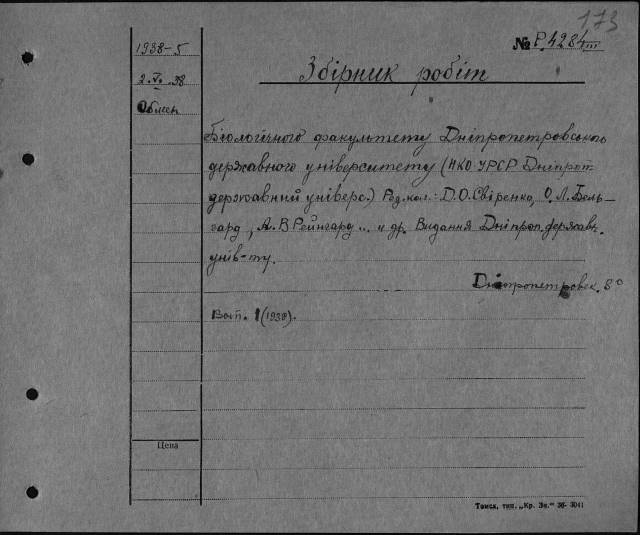 173
1938-5
№ Р.4284 III
2.VI.38
Збірник робіт
Обмен
Біологічного факультету Дніпропетровського
державного університету (НКО УРСР Дніпроп.
державний універс.) Ред.кол.: Д.О.Свіренко, О.Л.Бель-
гард, А.В Рейнгард и др. Видання Дніпроп.державн.
унів-ту.
Дніпропетровск. 8°
Вып. 1 (1938).
Цена
Томск, тип. „Кр. Зн.“ 36- 3041